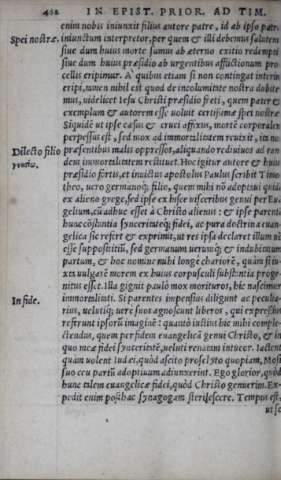 402 IN EPIST. PRIOR. AD TIM.
enim nobis iniunxit filius autore patre, id ab ipso patre
Spei nostræ. iniunctum interpretor, per quem & illi debemus salutem
siue dum huius morte sumus ab æterno exitio redempti
siue dum huius præsidio ab urgentibus afflictionum pro
cellis eripimur. A quibus etiam si non contingat interim
eripi, tamen nihil est quod de incolumitate nostra dubite
mus, uidelicet Iesu Christi præsidio freti, quem pater &
exemplum & autorem esse uoluit certissimæ spei nostræ
Siquidē ut ipse cæsus & cruci affixus, mortē corporalem
perpessus est, sed mox ad immortalitatem reuixit, ita nos
Dilecto filio præsentibus malis oppressos, aliquando rediuiuos ad ean
dem immortalitatem restituet. Hoc igitur autore & huius
præsidio fortis, et inuictus apostolus Paulus scribit Timo
theo, uero germanoq; filio, quem mihi nō adoptaui quidē
ex alieno grege, sed ipse ex hisce uisceribus genui per Eu
gelium, cū adhuc esset à Christo alienus : & ipse parentē
hunc cōstantia synceritateq; fidei, ac pura doctrina euan
gelica sic refert & exprimit, ut res ipsa declaret illum nō
esse supposititiū, sed germanum uerumq; & indubitatum
partum, & hoc nomine mihi longè chariorē, quàm si iu
xta uulgarē morem ex huius corpusculi substantia proge
nitus esset. Illa gignit paulò mox morituros, hic nascimur
In fide. immortalitati. Si parentes impensius diligunt ac peculia
rius, uelutiq; uerè suos agnoscunt liberos, qui expressius
referunt ipsorū imaginē: quantò iustius hic mihi comple
ctendus, quem per fidem euangelicā genui Christo, & in
quo meæ fidei synceritatē, ueluti renatam intueor. Iactent
quàm uolent Iudæi, quòd ascito proselyto quopiam, Mosi
suo ceu partū adoptiuum adiunxerint. Ego glorior, quòd
hunc talem euangelicæ fidei, quòd Christo genuerim. Ex-
pedit enim posthac synagogam sterilescere. Tempus est,
ut se